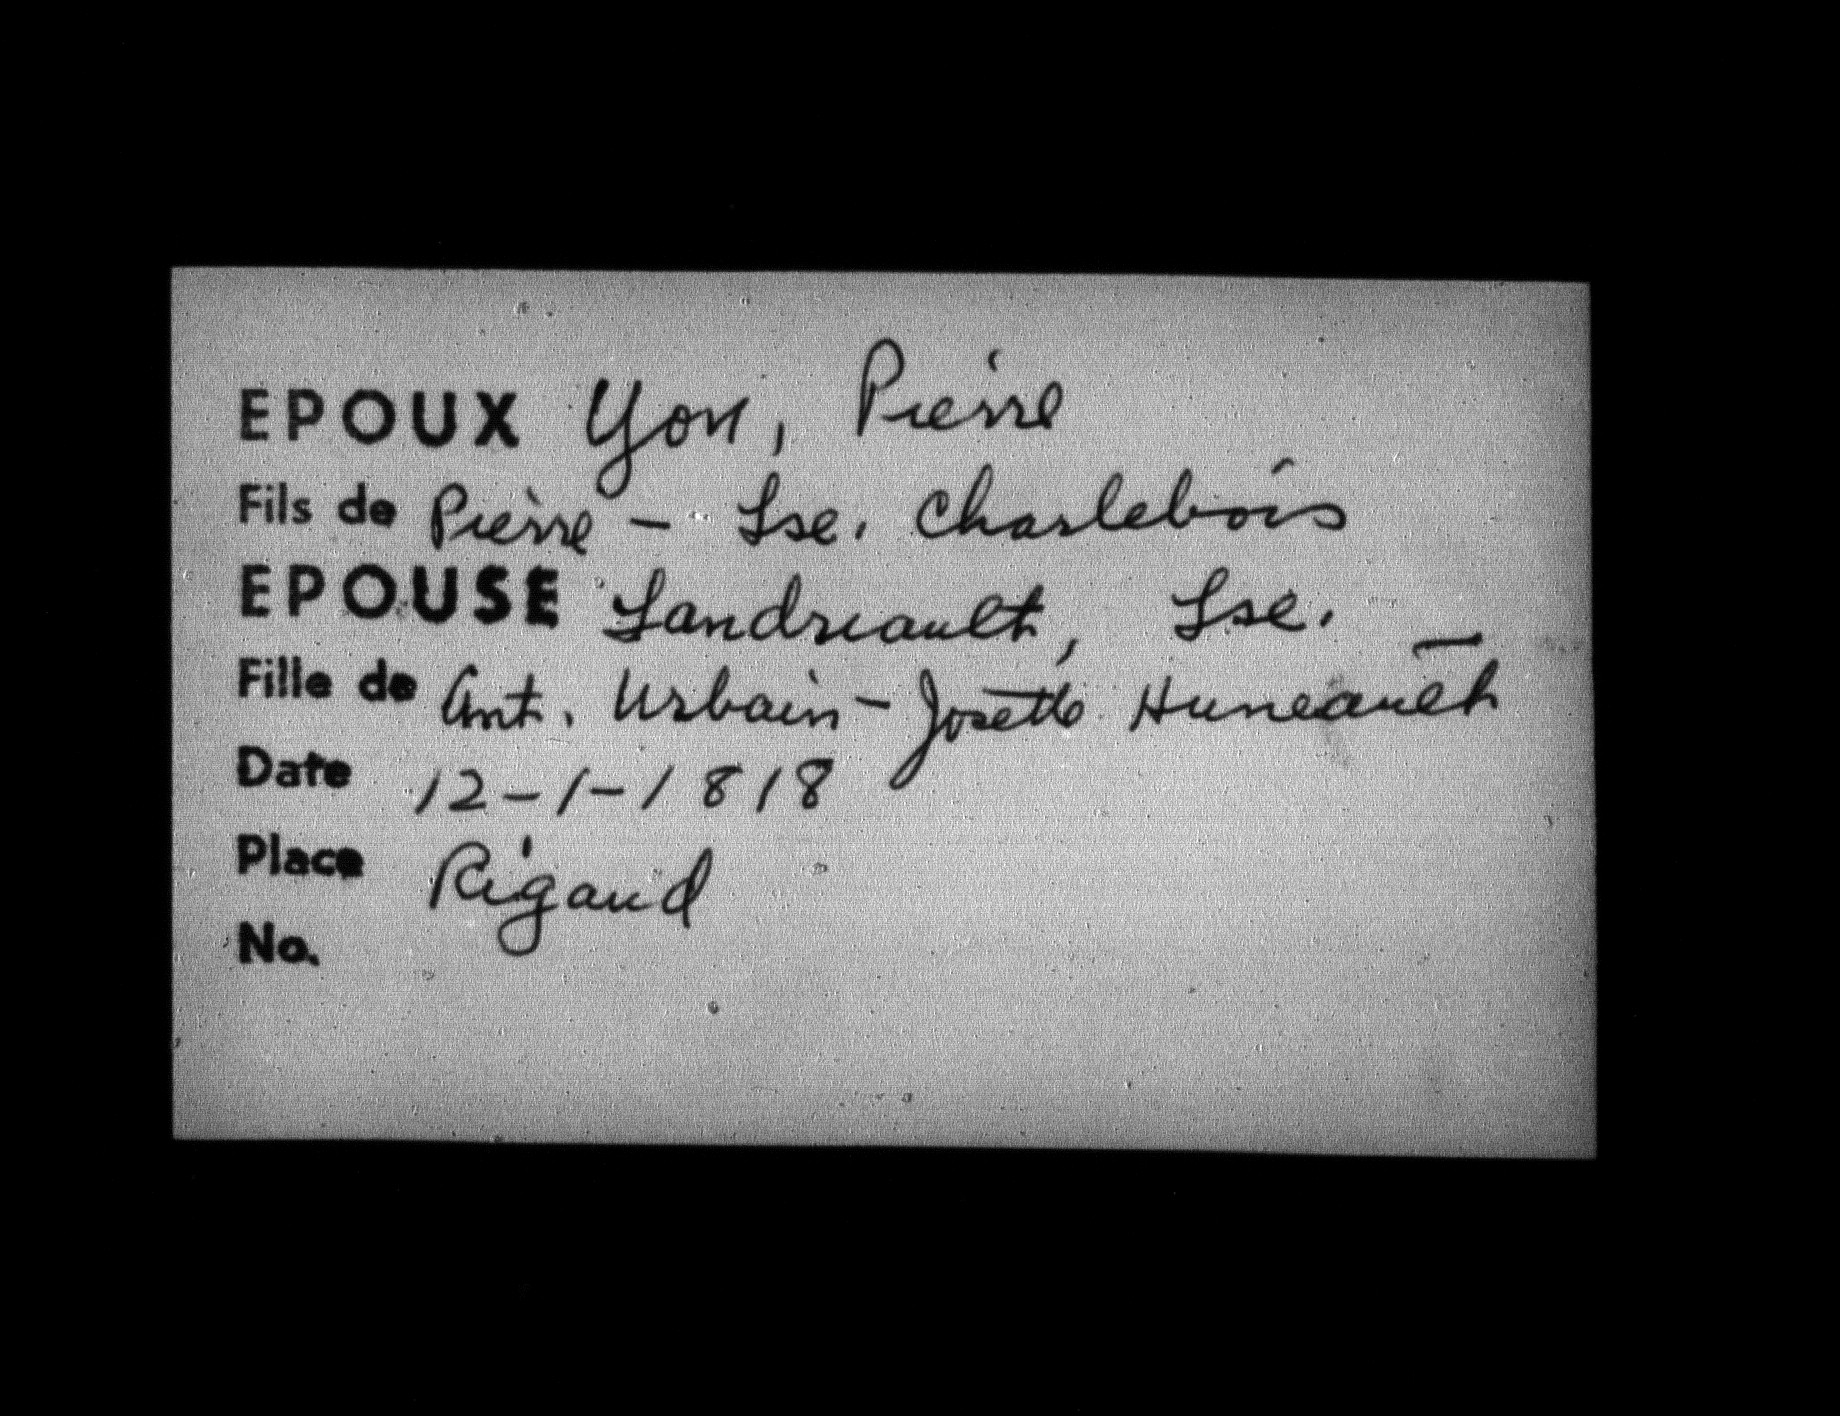 EPOUX Yon, Pierre
Fils de Pierre - Lse. Charlebois
EPOUSE Landriault, Lse.
Fille de Ant. Urbain - Josette Huneault
Date 12-1-1818
Place Rigaud
No.